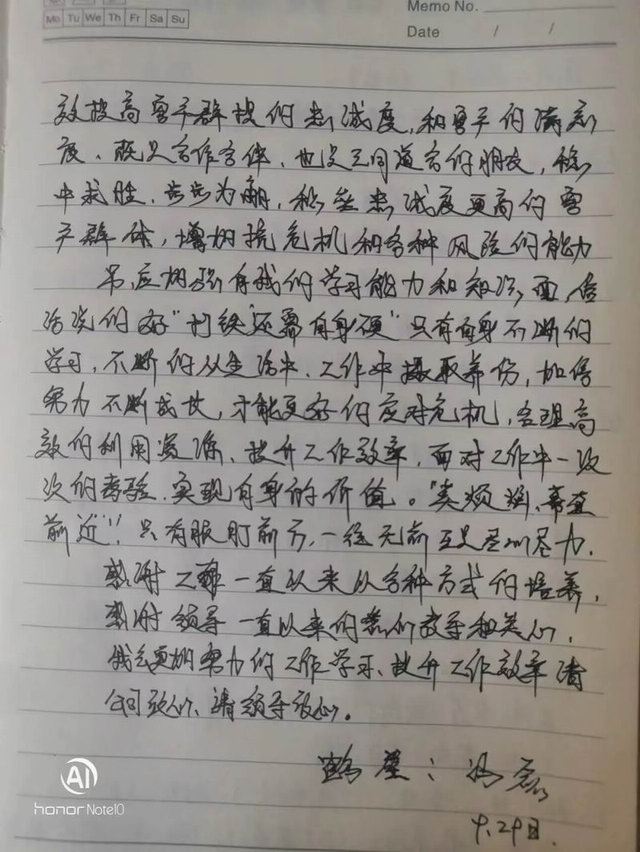 Mo Tu We Th Fr Sa Su
Memo No.
Date / /
效提高客户群投的忠诚度,和客户的满意
度、既是合作伙伴,也是志同道合的朋友,稳
中求胜,步步为赢,稳坐忠诚度更高的客
户群体,增加抗危机和各种风险的能力
应加强自我们学习能力和知识面,俗
话说的好"打铁还需自身硬"只有自身不断的
学习,不断的从生活中、工作中摄取养份,加倍
努力不断成长,才能更好的应对危机,合理高
效的利用资源、提升工作效率,面对工作中一次
次的考验,实现自身的价值。
前进"!只有眼盯前方,一往无前
感谢工 一直以来以各种方式的培养,
感谢领导一直以来的 教导和关心,
我会更加努力的工作学习、提升工作效率请
公司放心、请领导放心。
鹤壁:冯
9.29日
AI
honor Note10